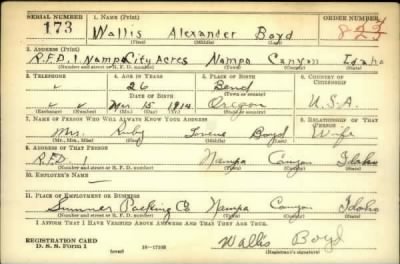 SERIAL NUMBER 1. NAME (Print) ORDER NUMBER
173 Wallis Alexander Boyd
(First) (Middle) (Last)
2. ADDRESS (Print)
R.F.D. 1 Nampa City Acres Nampa Canyon Idaho
(Number and street or R. F. D. number) (Town) (County) (State)
3. TELEPHONE 4. AGE IN YEARS 5. PLACE OF BIRTH 6. COUNTRY OF CITIZENSHIP
26 Bend
DATE OF BIRTH (Town or county)
Mar. 15 1914 Oregon U.S.A.
(Exchange) (Number) (Mo.) (Day) (Yr.) (State or country)
7. NAME OF PERSON WHO WILL ALWAYS KNOW YOUR ADDRESS 8. RELATIONSHIP OF THAT PERSON
Mrs. Ruby Boyd Wife
(Mr., Mrs., Miss) (First) (Middle) (Last)
9. ADDRESS OF THAT PERSON
R.F.D. 1 Nampa Canyon Idaho
(Number and street or R. F. D. number) (Town) (County) (State)
10. EMPLOYER'S NAME
11. PLACE OF EMPLOYMENT OR BUSINESS
Packing Co Nampa Canyon Idaho
(Number and street or R. F. D. number) (Town) (County) (State)
I AFFIRM THAT I HAVE VERIFIED ABOVE ANSWERS AND THAT THEY ARE TRUE.
REGISTRATION CARD
D. S. S. Form 1 Wallis Boyd
(Registrant's signature)